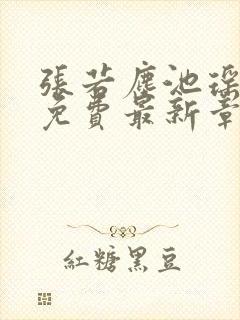 張若塵池瑤
免費最新章
紅糖黑豆